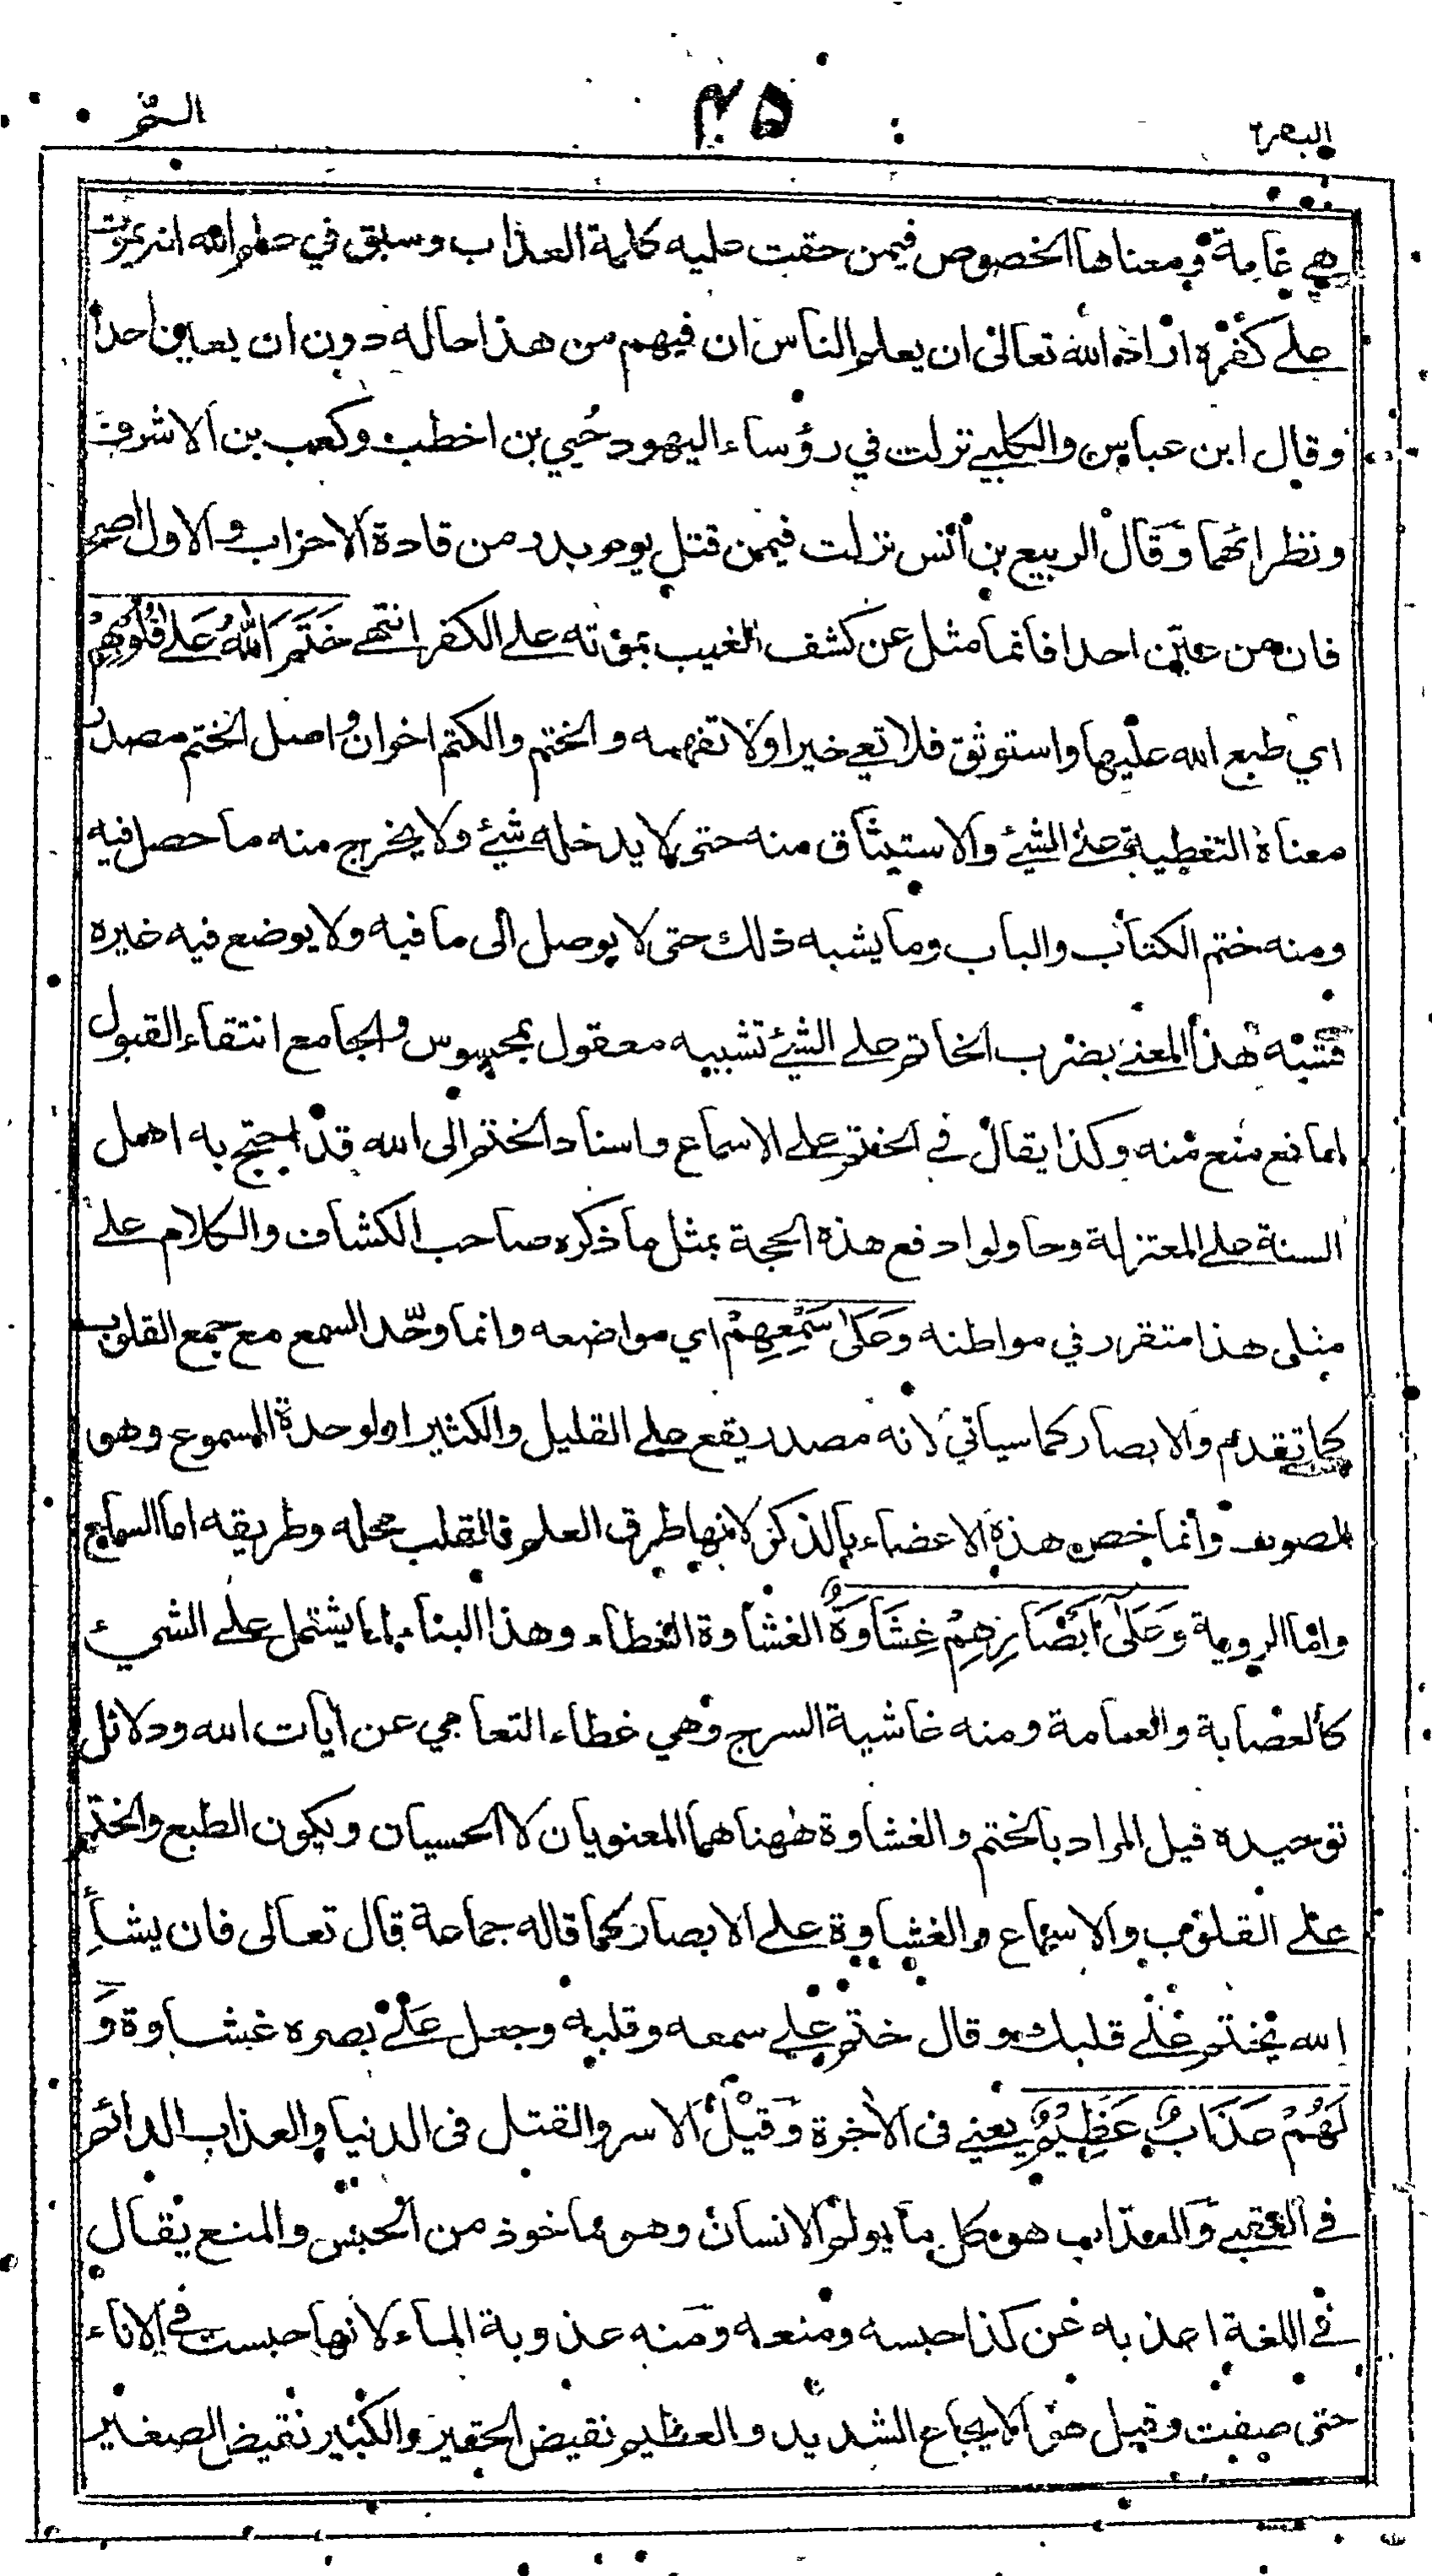 البقرة
٢٥
الــمّ
هي عامة ومعناها الخصوص فيمن حقت عليه كلمة العذاب وسبق في علم الله انه يموت
على كفره اراد الله تعالى ان يعلم الناس ان فيهم من هذا حاله دون ان يعين احدا
وقال ابن عباس والكلبي نزلت في رؤساء اليهود حُيي بن اخطب وكعب بن الاشرف
ونظرائهما وقال الربيع بن أنس نزلت فيمن قتل يوم بدر من قادة الاحزاب والاول اصح
فان من عيّن احدا فانما مثل عن كشف الغيب بموته على الكفر انتهى خَتَمَ اللهُ عَلى قُلُوْبِهِمْ
اي طبع الله عليها واستوثق فلا تعي خيرا ولا تفهمه والختم والكتم اخوان واصل الختم مصدر
معناه التغطية على الشيء والاستيثاق منه حتى لا يدخله شيء ولا يخرج منه ما حصل فيه
ومنه ختم الكتاب والباب وما يشبه ذلك حتى لا يوصل الى ما فيه ولا يوضع فيه غيره
فشبّه هذا المعنى بضرب الخاتم على الشيء تشبيه معقول بمحسوس والجامع انتقاء القبول
لمانع منع منه وكذا يقال في الختم على الاسماع واسناد الختم الى الله قد احتج به اهل
السنة على المعتزلة وحاولوا دفع هذه الحجة بمثل ما ذكره صاحب الكشاف والكلام على
مثل هذا متقرر في مواطنه وَعَلى سَمْعِهِمْ اي مواضعه وانما وحّد السمع مع جمع القلوب
كما تقدم والابصار كما سياتي لانه مصدر يقع على القليل والكثير او لوحدة المسموع وهو
الصوت وانما خص هذه الاعضاء بالذكر لانها طرق العلم فالقلب محله وطريقه اما السماع
واما الروية وَعَلى اَبْصَارِهِمْ غِشَاوَةٌ الغشاوة الغطاء وهذا البناء لما يشتمل على الشيء
كالعصابة والعمامة ومنه غاشية السرج وهي غطاء التعامي عن آيات الله ودلائل
توحيده قيل المراد بالختم والغشاوة ههنا هما المعنويان لا الحسيان ويكون الطبع والختم
على القلوب والاسماع والغشاوة على الابصار كما قاله جماعة قال تعالى فان يشأِ
الله يختم على قلبك وقال ختم على سمعه وقلبه وجعل على بصره غشاوة وَ
لَهُمْ عَذَابٌ عَظِيْمٌ يعني في الآخرة وقيل الاسر والقتل في الدنيا والعذاب الدائم
في العقبى والعذاب هو كل ما يولم الانسان وهو ماخوذ من الحبس والمنع يقال
في اللغة اعذبه عن كذا حبسه ومنعه ومنه عذوبة الماء لانها حبست في الاناء
حتى صفت وقيل هو الايجاع الشديد والعظيم نقيض الحقير والكبير نقيض الصغير